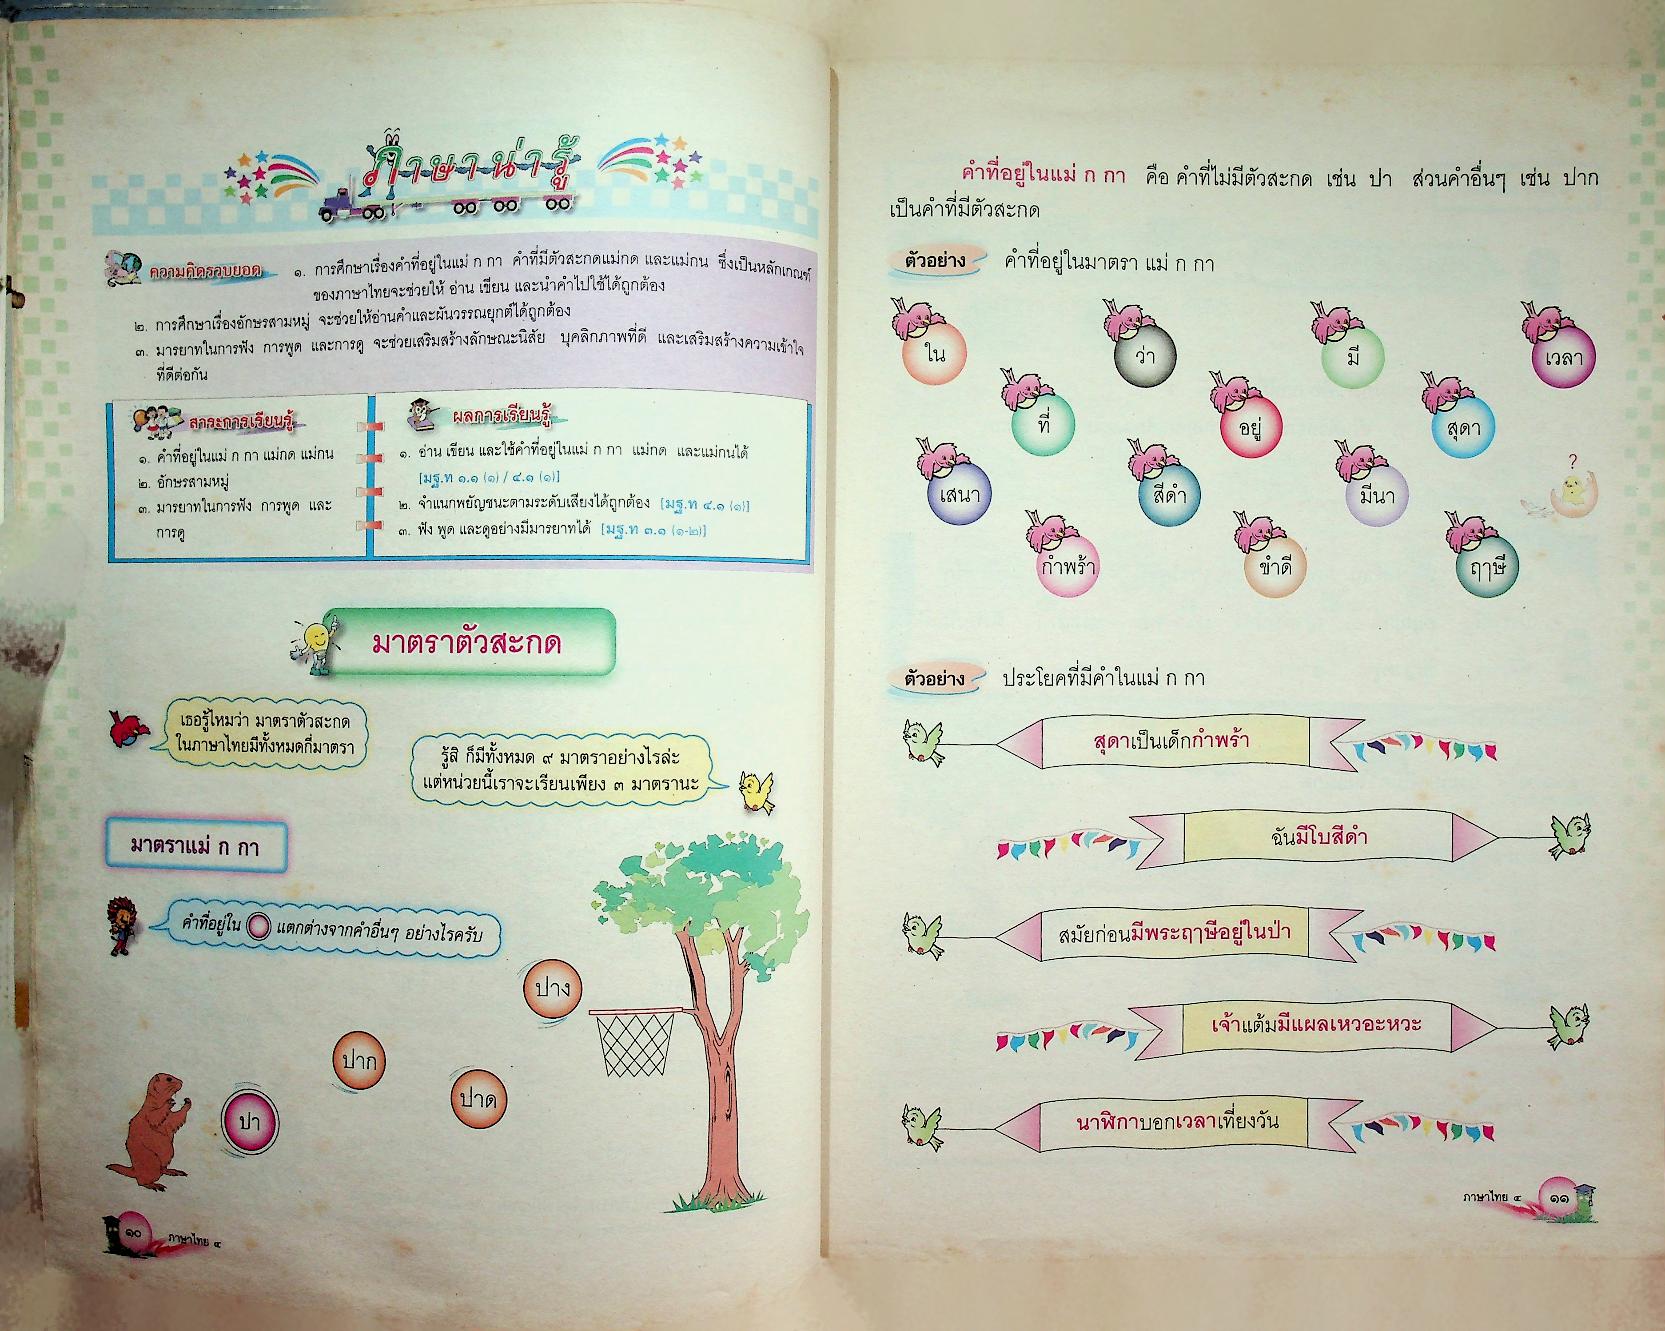 ภาษาน่ารู้
ความคิดรวบยอด
๑. การศึกษาเรื่องคำที่อยู่ในแม่ ก กา คำที่มีตัวสะกดแม่กด และแม่กน ซึ่งเป็นหลักเกณฑ์
ของภาษาไทยจะช่วยให้ อ่าน เขียน และนำคำไปใช้ได้ถูกต้อง
๒. การศึกษาเรื่องอักษรสามหมู่ จะช่วยให้อ่านคำและผันวรรณยุกต์ได้ถูกต้อง
๓. มารยาทในการฟัง การพูด และการดู จะช่วยเสริมสร้างลักษณะนิสัย บุคลิกภาพที่ดี และเสริมสร้างความเข้าใจ
ที่ดีต่อกัน
สาระการเรียนรู้
๑. คำที่อยู่ในแม่ ก กา แม่กด แม่กน
๒. อักษรสามหมู่
๓. มารยาทในการฟัง การพูด และ
การดู
ผลการเรียนรู้
๑. อ่าน เขียน และใช้คำที่อยู่ในแม่ ก กา แม่กด และแม่กนได้
[มฐ.ท ๑.๑ (๑) / ๔.๑ (๑)]
๒. จำแนกพยัญชนะตามระดับเสียงได้ถูกต้อง [มฐ.ท ๔.๑ (๑)]
๓. ฟัง พูด และดูอย่างมีมารยาทได้ [มฐ.ท ๓.๑ (๑-๒)]
มาตราตัวสะกด
เธอรู้ไหมว่า มาตราตัวสะกด
ในภาษาไทยมีทั้งหมดกี่มาตรา
รู้สิ ก็มีทั้งหมด ๙ มาตราอย่างไรล่ะ
แต่หน่วยนี้เราจะเรียนเพียง ๓ มาตรานะ
มาตราแม่ ก กา
คำที่อยู่ใน แตกต่างจากคำอื่นๆ อย่างไรครับ
ปาง
ปาก
ปาด
ปา
๑๐
ภาษาไทย ๔
คำที่อยู่ในแม่ ก กา คือ คำที่ไม่มีตัวสะกด เช่น ปา ส่วนคำอื่นๆ เช่น ปาก
เป็นคำที่มีตัวสะกด
ตัวอย่าง คำที่อยู่ในมาตรา แม่ ก กา
ใน ว่า มี เวลา
ที่ อยู่ สุดา
เสนา สีดำ มีนา
?
กำพร้า ขำดี ฤๅษี
ตัวอย่าง ประโยคที่มีคำในแม่ ก กา
สุดาเป็นเด็กกำพร้า
ฉันมีโบสีดำ
สมัยก่อนมีพระฤๅษีอยู่ในป่า
เจ้าแต้มมีแผลเหวอะหวะ
นาฬิกาบอกเวลาเที่ยงวัน
ภาษาไทย ๔ ๑๑